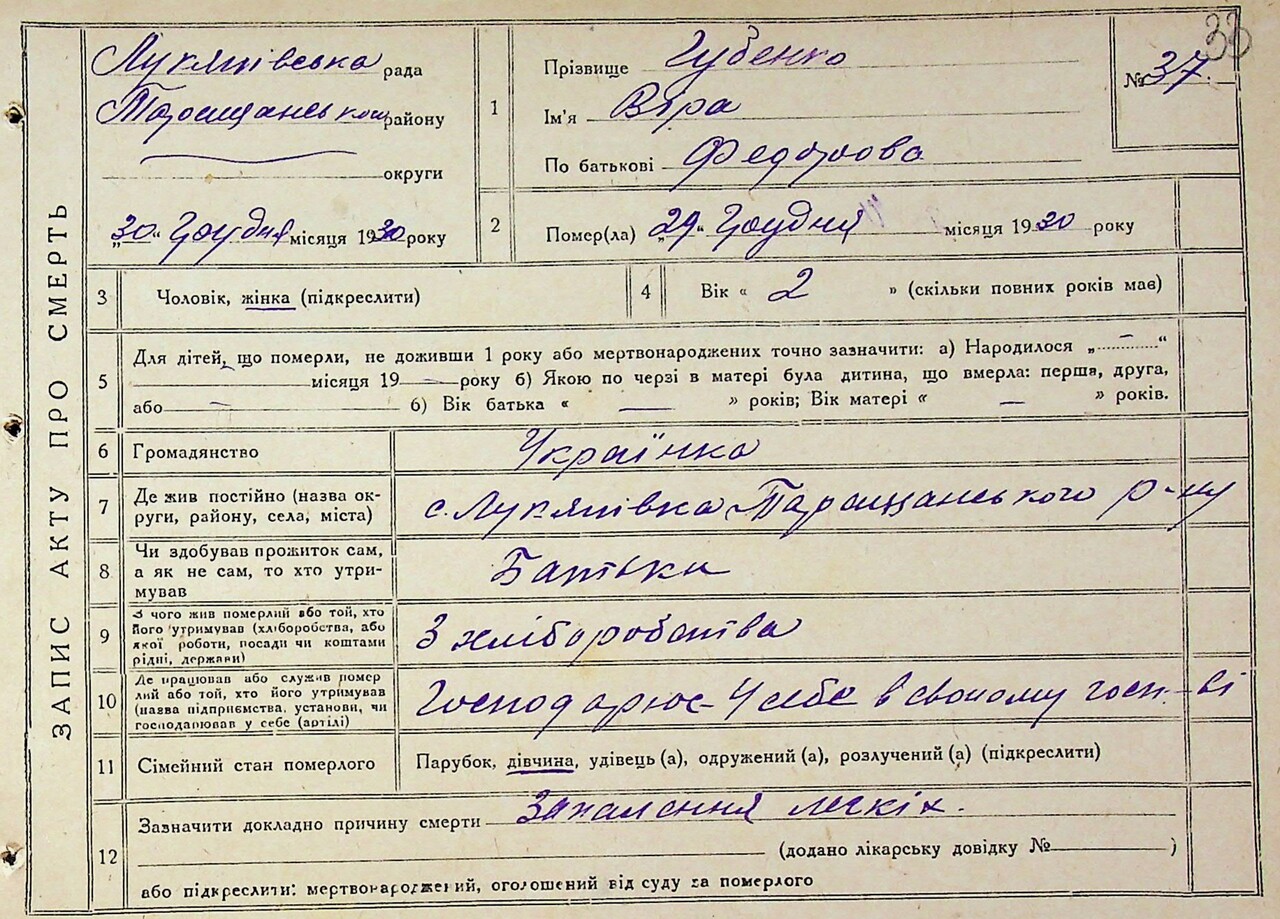 33
ЗАПИС АКТУ ПРО СМЕРТЬ
Лукянівська рада
Таращанського району
округи
„30“ Грудня місяця 1930 року
1
Прізвище Губенко
Ім'я Віра
По батькові Федорова
№ 37.
2
Помер(ла) „29“ Грудня місяця 1930 року
3
Чоловік, жінка (підкреслити)
4
Вік « 2 » (скільки повних років має)
5
Для дітей, що померли, не доживши 1 року або мертвонароджених точно зазначити: а) Народилося „ — “
місяця 19 — року б) Якою по черзі в матері була дитина, що вмерла: перша, друга,
або — б) Вік батька « — » років; Вік матері « — » років.
6
Громадянство
Українка
7
Де жив постійно (назва ок-
руги, району, села, міста)
с. Лукянівка Таращанського р-ну
8
Чи здобував прожиток сам,
а як не сам, то хто утри-
мував
Батьки
9
З чого жив померлий або той, хто
його утримував (хліборобства, або
якої роботи, посади чи коштами
рідні, держави)
З хліборобства
10
Де працював або служив помер
лий або той, хто його утримував
(назва підприємства, установи, чи
господарював у себе (артілі)
Господарює У себе в своному госп-ві
11
Сімейний стан померлого
Парубок, дівчина, удівець (а), одружений (а), розлучений (а) (підкреслити)
12
Зазначити докладно причину смерти Запалення легкіх.
(додано лікарську довідку № )
або підкреслити: мертвонароджений, оголошений від суду за померлого